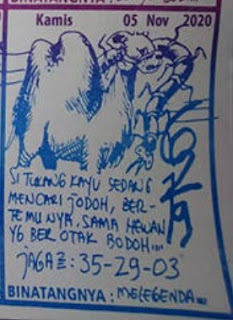 Kamis 05 Nov 2020
SI TUKANG KAYU SEDANG
MENCARI JODOH, BER-
TEMUNYA SAMA HEWAN
YG BER OTAK BODOH....
JAGA²: 35-29-03
BINATANGNYA: MELEGENDA...